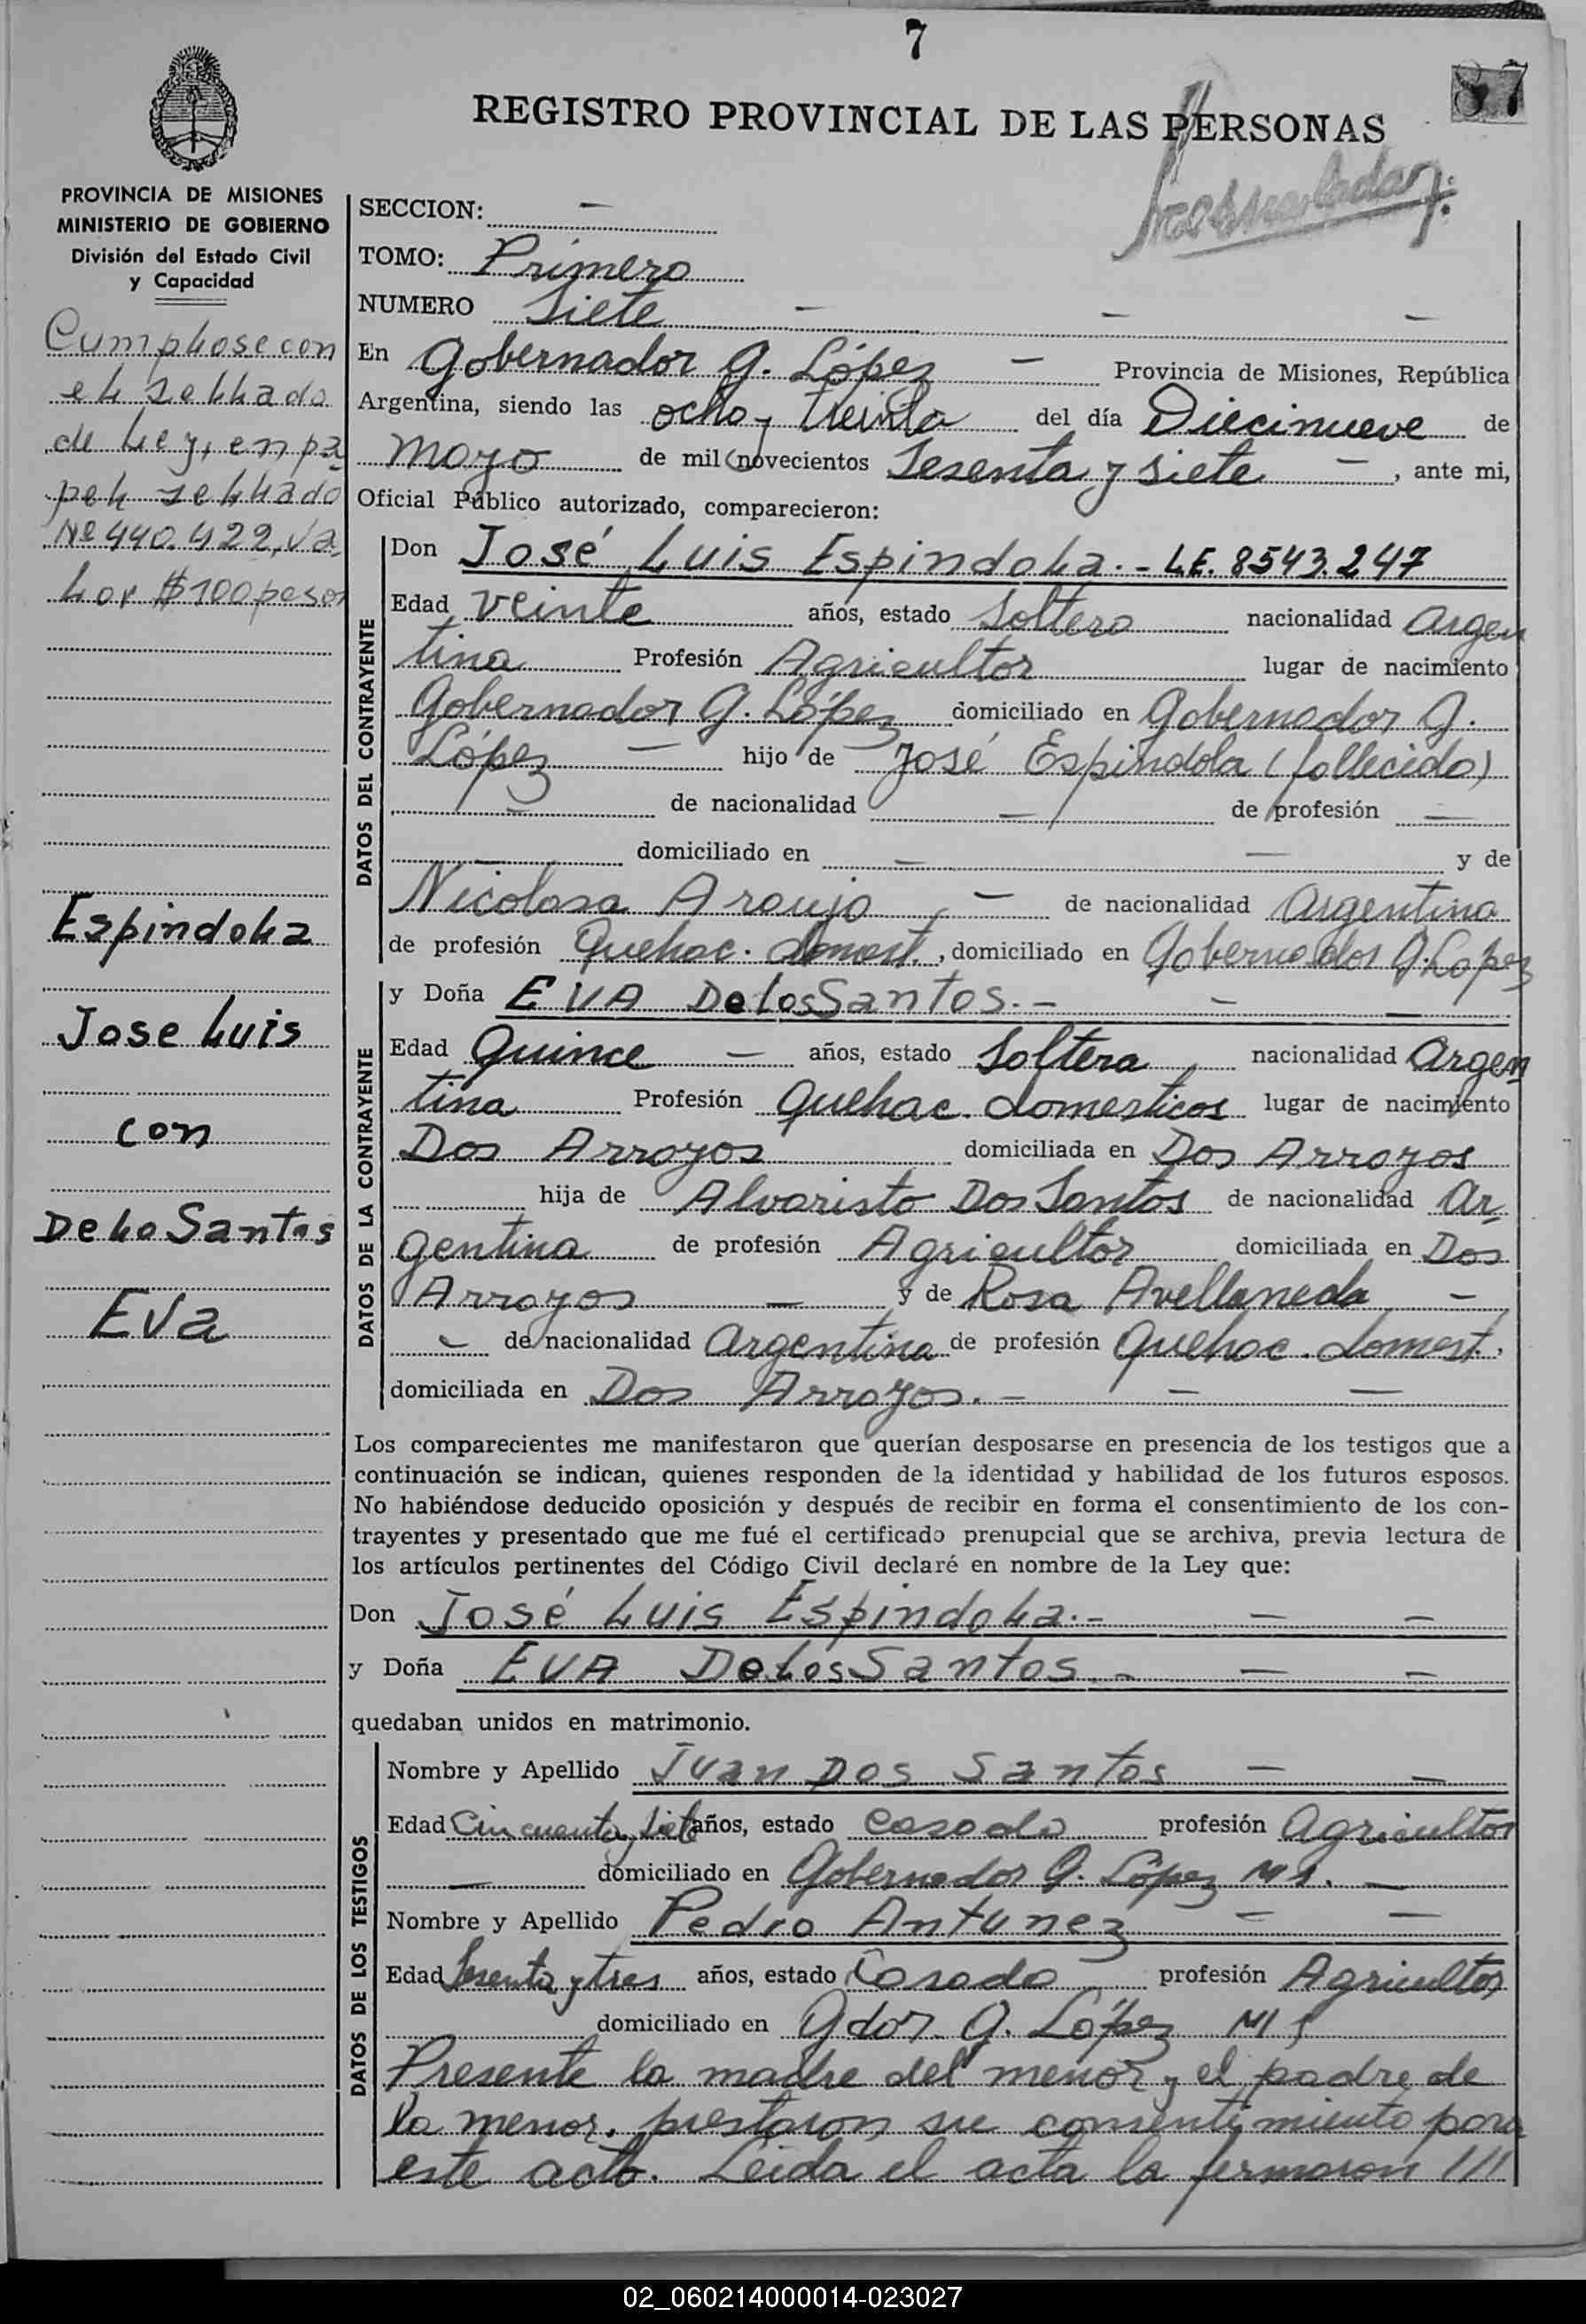 7
87
REGISTRO PROVINCIAL DE LAS PERSONAS
PROVINCIA DE MISIONES
MINISTERIO DE GOBIERNO
División del Estado Civil
y Capacidad
Cumplose con
el sellado
de Ley, en pa
pel sellado
Nº 440.422, va
lor $ 100 pesos
Espindola
Jose Luis
con
De Lo Santos
Eva
SECCION: -
TOMO: Primero
NUMERO Siete - - -
En Gobernador G. López - Provincia de Misiones, República
Argentina, siendo las ocho y treinta del día Diecinueve de
mayo de mil novecientos Sesenta y siete -, ante mi,
Oficial Público autorizado, comparecieron:
DATOS DEL CONTRAYENTE
Don José Luis Espindola.- L.E. 8543.247
Edad veinte años, estado Soltero nacionalidad Argen
tina Profesión Agricultor lugar de nacimiento
Gobernador G. López domiciliado en Gobernador G.
López - hijo de José Espindola (fallecido)
- de nacionalidad - de profesión -
- domiciliado en - - y de
Nicolasa Araujo, - de nacionalidad Argentina
de profesión Quehac. domest., domiciliado en Gobernador G. López
DATOS DE LA CONTRAYENTE
y Doña EVA De Los Santos.- - -
Edad Quince - años, estado Soltera nacionalidad Argen
tina Profesión Quehac. domesticos lugar de nacimiento
Dos Arroyos domiciliada en Dos Arroyos
hija de Alvaristo Dos Santos de nacionalidad Ar
gentina de profesión Agricultor domiciliada en Dos
Arroyos - y de Rosa Avellaneda -
- de nacionalidad Argentina de profesión Quehac. domest.
domiciliada en Dos Arroyos.- - -
Los comparecientes me manifestaron que querían desposarse en presencia de los testigos que a
continuación se indican, quienes responden de la identidad y habilidad de los futuros esposos.
No habiéndose deducido oposición y después de recibir en forma el consentimiento de los con-
trayentes y presentado que me fué el certificado prenupcial que se archiva, previa lectura de
los artículos pertinentes del Código Civil declaré en nombre de la Ley que:
Don José Luis Espindola.- - -
y Doña EVA De Los Santos.- - -
quedaban unidos en matrimonio.
DATOS DE LOS TESTIGOS
Nombre y Apellido Juan Dos Santos - -
Edad Cincuenta y siete años, estado Casado profesión Agricultor
- domiciliado en Gobernador G. López Ms. -
Nombre y Apellido Pedro Antunez - -
Edad Sesenta y tres años, estado Casado profesión Agricultor
domiciliado en Gdor. G. López Ms
Presente la madre del menor y el padre de
la menor, prestaron su consentimiento para
este acto. Leida el acta la firmaron ///
02_060214000014-023027